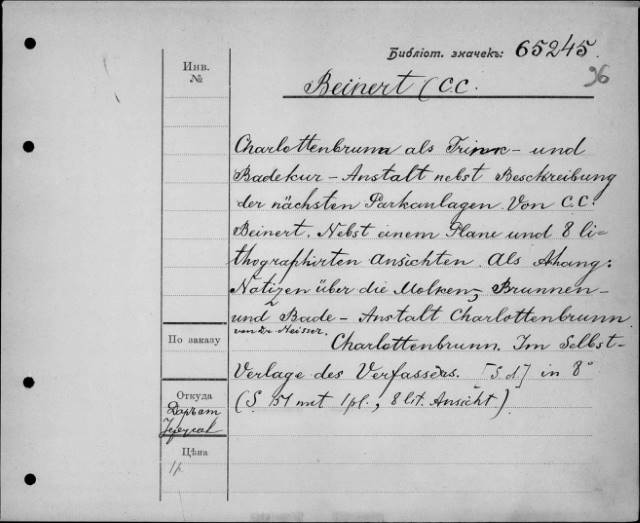 Библіот. значекъ: 65245.
96
Инв. №
Beinert (C.C.
Charlottenbrunn als Trink- und
Badekur-Anstalt nebst Beschreibung
der nächsten Parkanlagen. Von C.C.
Beinert. Nebst einem Plane und 8 li-
thographirten Ansichten. Als Ahang:
Notizen über die Molken-, Brunnen-
und Bade-Anstalt Charlottenbrunn
von Dr Neisser.
По заказу
Charlottenbrunn. Im Selbst-
Verlage des Verfassers. [S.d] in 8°
Откуда
(S. 151 mit 1 pl., 8 lit. Ansicht)
Цѣна
1р